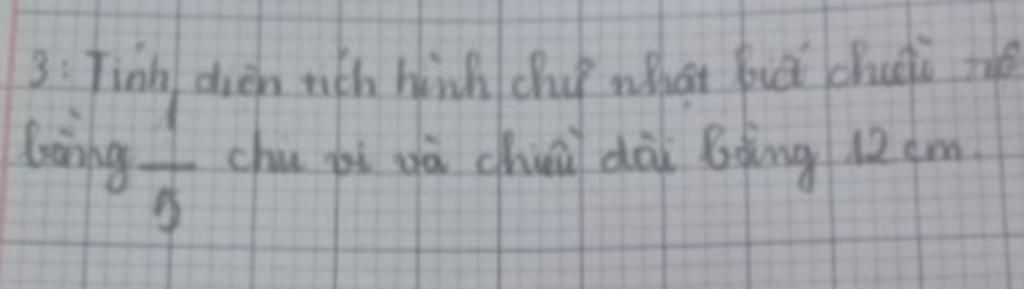 3: Tính diện tích hình chữ nhật biết chiều
bằng 1/5 chu vi và chiều dài bằng 12 cm.